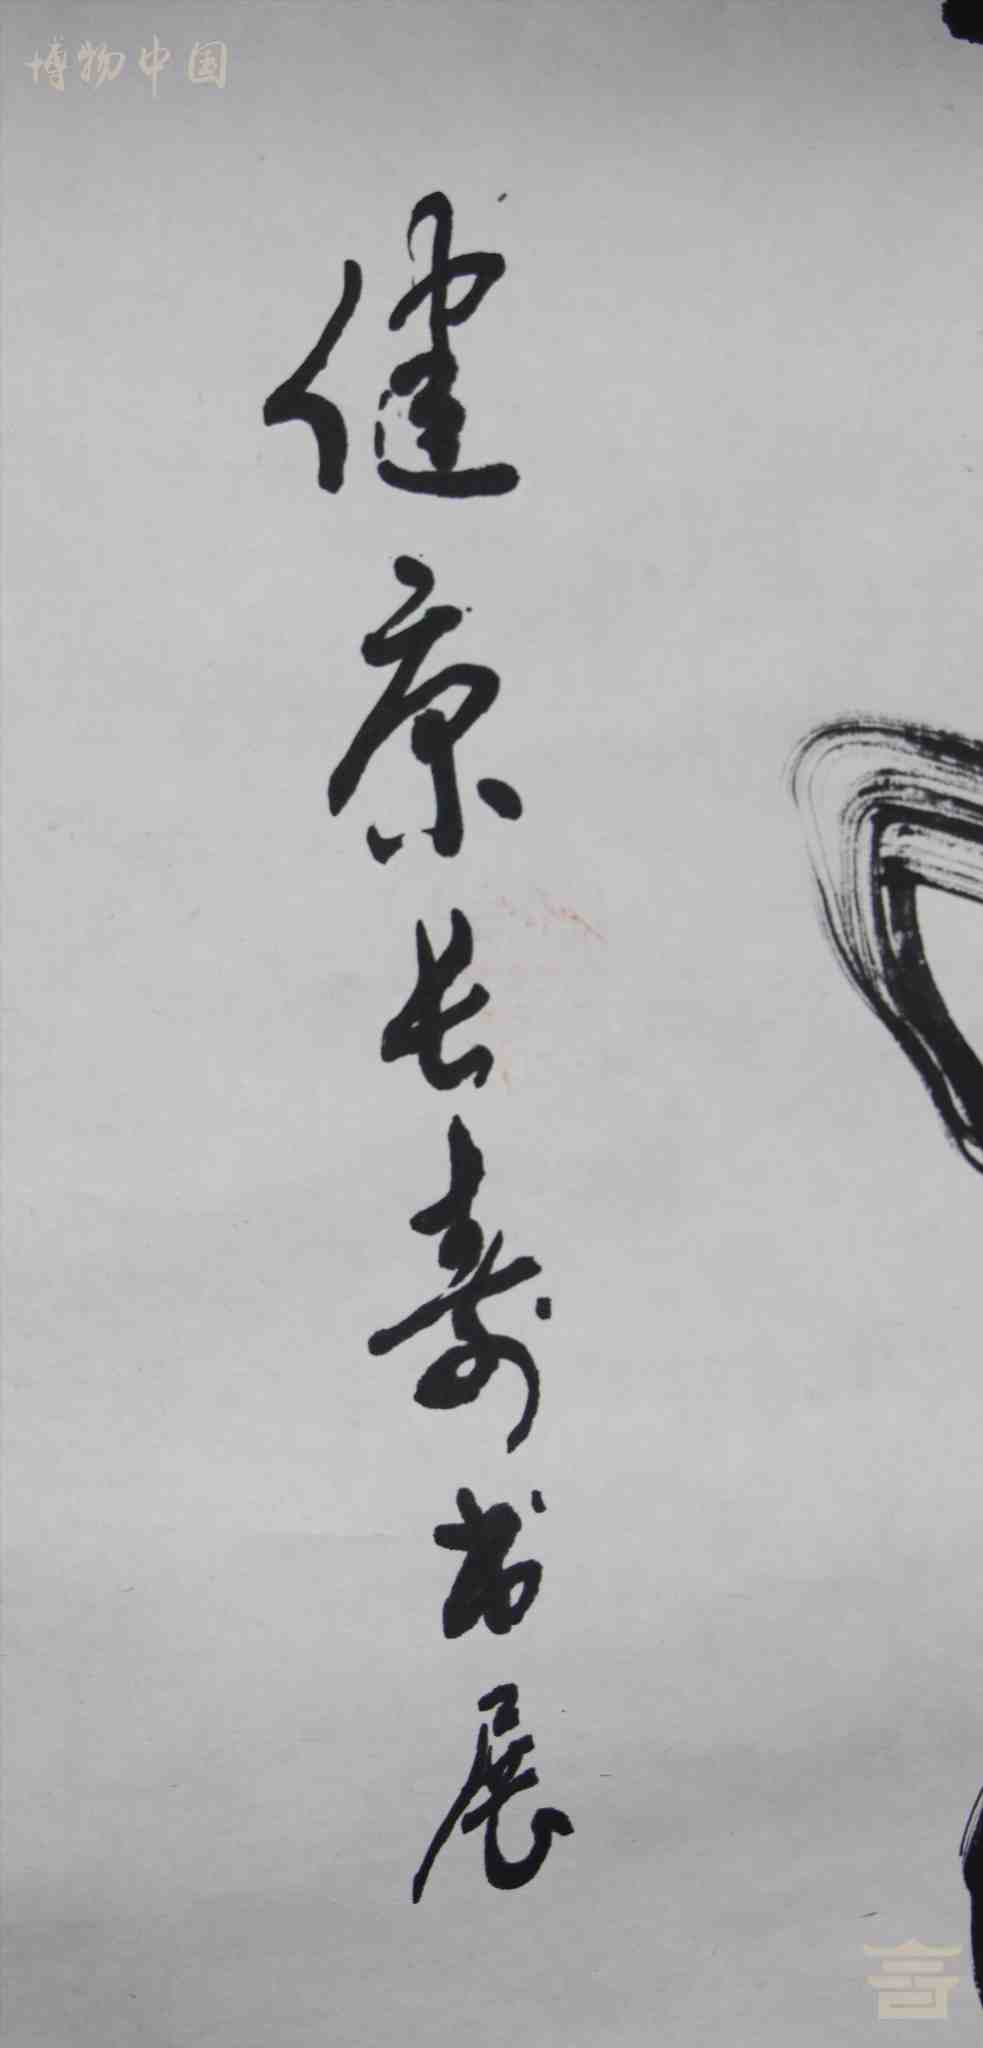 博物中国
健康长寿书展